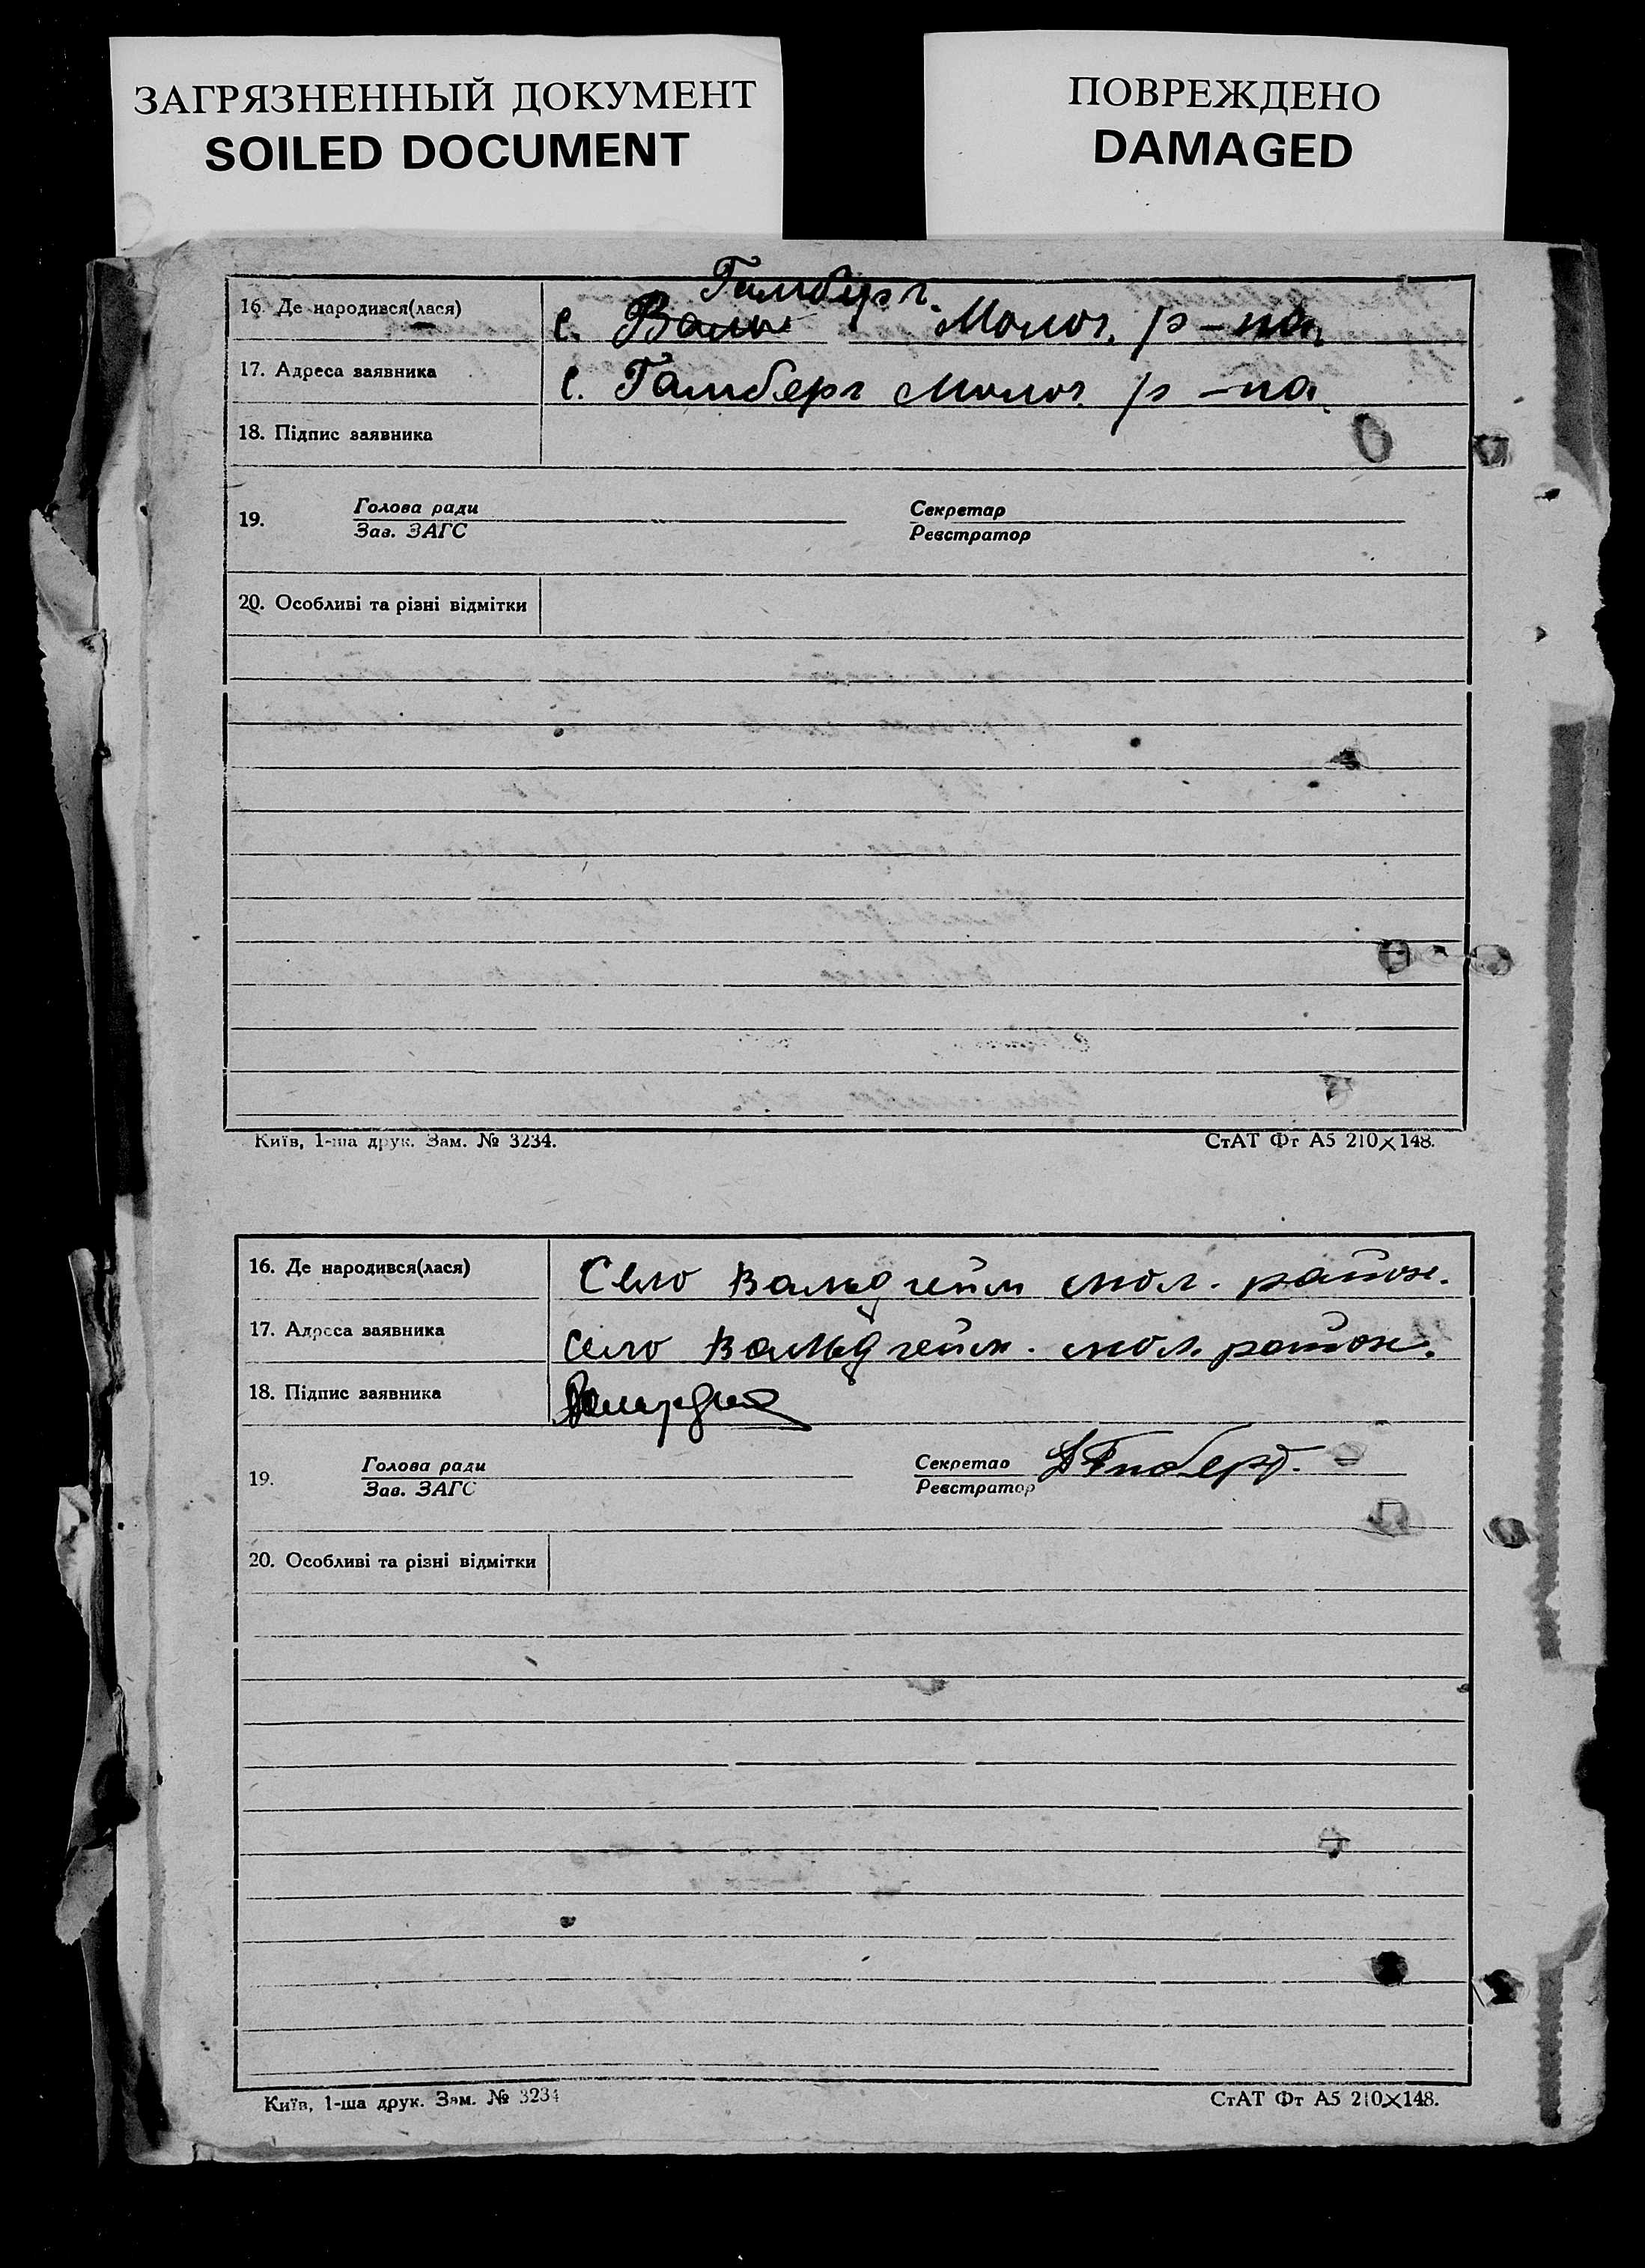 ЗАГРЯЗНЕННЫЙ ДОКУМЕНТ
SOILED DOCUMENT
ПОВРЕЖДЕНО
DAMAGED
Гамберг.
16. Де народився(лася) с. Валь Молоч. р-на
17. Адреса заявника с. Гамберг Молоч. р-на
18. Підпис заявника
19. Голова ради Секретар
Зав. ЗАГС Реєстратор
20. Особливі та різні відмітки
Київ, 1-ша друк. Зам. № 3234. СтАТ Фт А5 210×148.
16. Де народився(лася) Село Вальдгейм мол. район.
17. Адреса заявника село Вальдгейм. мол. район.
18. Підпис заявника
19. Голова ради Секретар
Зав. ЗАГС Реєстратор
20. Особливі та різні відмітки
Київ, 1-ша друк. Зам. № 3234 СтАТ Фт А5 210×148.